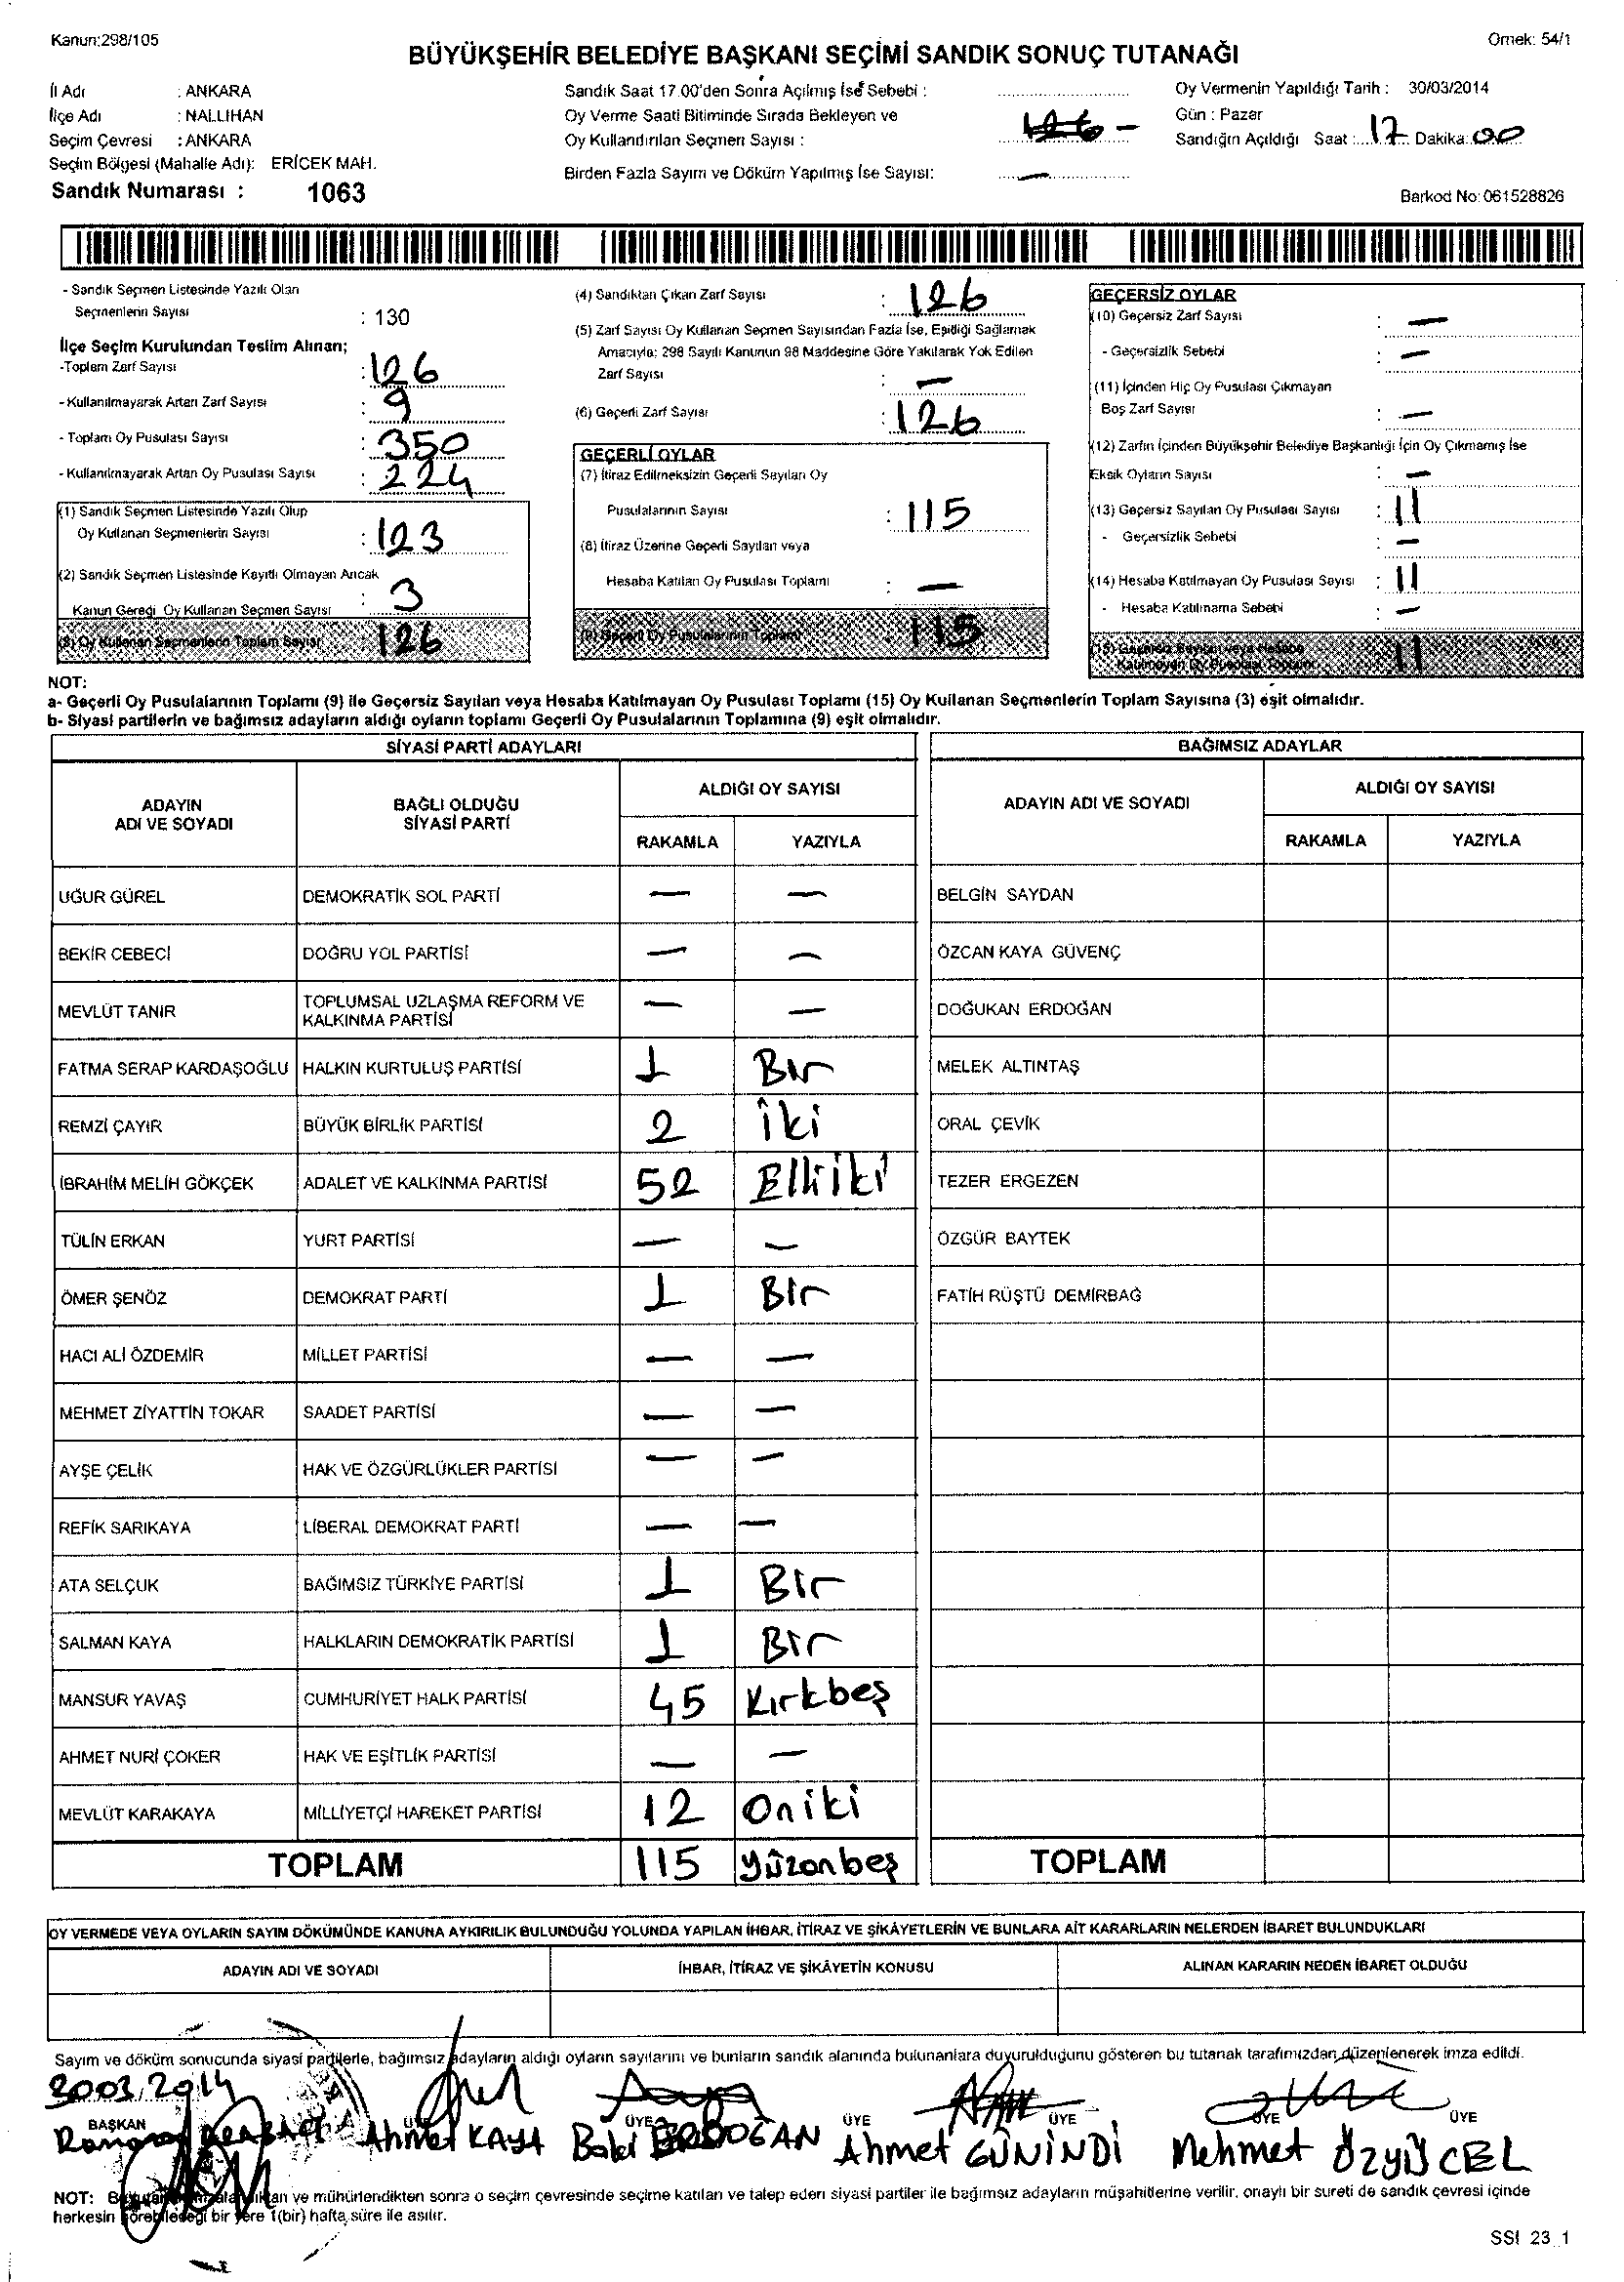 Kanun:298/105
Örnek: 54/1
BÜYÜKŞEHİR BELEDİYE BAŞKANI SEÇİMİ SANDIK SONUÇ TUTANAĞI
İl Adı : ANKARA
İlçe Adı : NALLIHAN
Seçim Çevresi : ANKARA
Seçim Bölgesi (Mahalle Adı): ERİCEK MAH.
Sandık Numarası : 1063
Sandık Saat 17.00'den Sonra Açılmış İse Sebebi :
Oy Verme Saati Bitiminde Sırada Bekleyen ve
Oy Kullandırılan Seçmen Sayısı : —
Birden Fazla Sayım ve Döküm Yapılmış İse Sayısı: —
Oy Vermenin Yapıldığı Tarih : 30/03/2014
Gün : Pazar
Sandığın Açıldığı Saat : 17 Dakika: 00
Barkod No:061528826
- Sandık Seçmen Listesinde Yazılı Olan
Seçmenlerin Sayısı : 130
İlçe Seçim Kurulundan Teslim Alınan;
-Toplam Zarf Sayısı : 126
- Kullanılmayarak Artan Zarf Sayısı : 9
- Toplam Oy Pusulası Sayısı : 350
- Kullanılmayarak Artan Oy Pusulası Sayısı : 224
(1) Sandık Seçmen Listesinde Yazılı Olup
Oy Kullanan Seçmenlerin Sayısı : 123
(2) Sandık Seçmen Listesinde Kayıtlı Olmayan Ancak
Kanun Gereği Oy Kullanan Seçmen Sayısı : 3
(3) Oy Kullanan Seçmenlerin Toplam Sayısı 126
(4) Sandıktan Çıkan Zarf Sayısı : 126
(5) Zarf Sayısı Oy Kullanan Seçmen Sayısından Fazla İse, Eşitliği Sağlamak
Amacıyla; 298 Sayılı Kanunun 98 Maddesine Göre Yakılarak Yok Edilen
Zarf Sayısı : —
(6) Geçerli Zarf Sayısı : 126
GEÇERLİ OYLAR
(7) İtiraz Edilmeksizin Geçerli Sayılan Oy
Pusulalarının Sayısı : 115
(8) İtiraz Üzerine Geçerli Sayılan veya
Hesaba Katılan Oy Pusulası Toplamı : —
(9) Geçerli Oy Pusulalarının Toplamı : 115
GEÇERSİZ OYLAR
(10) Geçersiz Zarf Sayısı : —
- Geçersizlik Sebebi : —
(11) İçinden Hiç Oy Pusulası Çıkmayan
Boş Zarf Sayısı : —
(12) Zarfın İçinden Büyükşehir Belediye Başkanlığı İçin Oy Çıkmamış İse
Eksik Oyların Sayısı : —
(13) Geçersiz Sayılan Oy Pusulası Sayısı : 11
- Geçersizlik Sebebi : —
(14) Hesaba Katılmayan Oy Pusulası Sayısı : 11
- Hesaba Katılmama Sebebi : —
(15) Geçersiz Sayılan veya Hesaba
Katılmayan Oy Pusulası Toplamı : 11
NOT:
a- Geçerli Oy Pusulalarının Toplamı (9) ile Geçersiz Sayılan veya Hesaba Katılmayan Oy Pusulası Toplamı (15) Oy Kullanan Seçmenlerin Toplam Sayısına (3) eşit olmalıdır.
b- Siyasi partilerin ve bağımsız adayların aldığı oyların toplamı Geçerli Oy Pusulalarının Toplamına (9) eşit olmalıdır.
SİYASİ PARTİ ADAYLARI
ADAYIN ADI VE SOYADI
BAĞLI OLDUĞU SİYASİ PARTİ
ALDIĞI OY SAYISI
RAKAMLA YAZIYLA
UĞUR GÜREL DEMOKRATİK SOL PARTİ — —
BEKİR CEBECİ DOĞRU YOL PARTİSİ — —
MEVLÜT TANIR TOPLUMSAL UZLAŞMA REFORM VE KALKINMA PARTİSİ — —
FATMA SERAP KARDAŞOĞLU HALKIN KURTULUŞ PARTİSİ 1 Bir
REMZİ ÇAYIR BÜYÜK BİRLİK PARTİSİ 2 iki
İBRAHİM MELİH GÖKÇEK ADALET VE KALKINMA PARTİSİ 52 Elliiki
TÜLİN ERKAN YURT PARTİSİ — —
ÖMER ŞENÖZ DEMOKRAT PARTİ 1 Bir
HACI ALİ ÖZDEMİR MİLLET PARTİSİ — —
MEHMET ZİYATTİN TOKAR SAADET PARTİSİ — —
AYŞE ÇELİK HAK VE ÖZGÜRLÜKLER PARTİSİ — —
REFİK SARIKAYA LİBERAL DEMOKRAT PARTİ — —
ATA SELÇUK BAĞIMSIZ TÜRKİYE PARTİSİ 1 Bir
SALMAN KAYA HALKLARIN DEMOKRATİK PARTİSİ 1 Bir
MANSUR YAVAŞ CUMHURİYET HALK PARTİSİ 45 Kırkbeş
AHMET NURİ ÇOKER HAK VE EŞİTLİK PARTİSİ — —
MEVLÜT KARAKAYA MİLLİYETÇİ HAREKET PARTİSİ 12 Oniki
TOPLAM 115 yüzonbeş
BAĞIMSIZ ADAYLAR
ADAYIN ADI VE SOYADI
ALDIĞI OY SAYISI
RAKAMLA YAZIYLA
BELGİN SAYDAN
ÖZCAN KAYA GÜVENÇ
DOĞUKAN ERDOĞAN
MELEK ALTINTAŞ
ORAL ÇEVİK
TEZER ERGEZEN
ÖZGÜR BAYTEK
FATİH RÜŞTÜ DEMİRBAĞ
TOPLAM
OY VERMEDE VEYA OYLARIN SAYIM DÖKÜMÜNDE KANUNA AYKIRILIK BULUNDUĞU YOLUNDA YAPILAN İHBAR, İTİRAZ VE ŞİKÂYETLERİN VE BUNLARA AİT KARARLARIN NELERDEN İBARET BULUNDUKLARI
ADAYIN ADI VE SOYADI
İHBAR, İTİRAZ VE ŞİKÂYETİN KONUSU
ALINAN KARARIN NEDEN İBARET OLDUĞU
Sayım ve döküm sonucunda siyasi partilerle, bağımsız adayların aldığı oyların sayılarını ve bunların sandık alanında bulunanlara duyurulduğunu gösteren bu tutanak tarafımızdan düzenlenerek imza edildi.
30.03.2014
BAŞKAN ÜYE ÜYE ÜYE ÜYE ÜYE ÜYE
Ahmet KAYA Baki ERDOĞAN Ahmet GÜNİNDİ Mehmet ÖZYÜCEL
NOT: ve mühürlendikten sonra o seçim çevresinde seçime katılan ve talep eden siyasi partiler ile bağımsız adayların müşahitlerine verilir, onaylı bir sureti de sandık çevresi içinde
herkesin görebileceği bir yere 1(bir) hafta süre ile asılır.
SSI 23_1